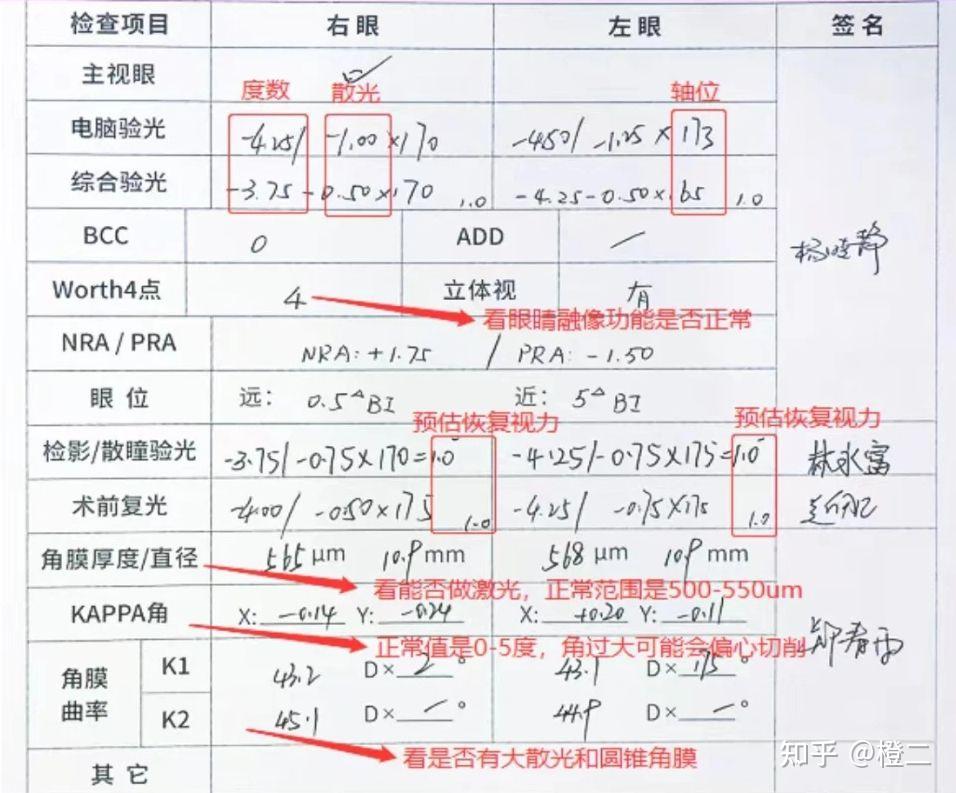 检查项目 右眼 左眼 签名
主视眼
度数 散光 轴位
电脑验光 -4.25/ -1.00×170 -4.50/ -1.25×173
综合验光 -3.75-0.50×170 1.0 -4.25-0.50×165 1.0
BCC 0 ADD /
Worth4点 4 立体视 有
看眼睛融像功能是否正常
NRA / PRA NRA: +1.75 / PRA: -1.50
眼位 远: 0.5△BI 近: 5△BI
预估恢复视力 预估恢复视力
检影/散瞳验光 -3.75/-0.75×170=1.0 -4.25/-0.75×175=1.0 林水富
术前复光 -4.00/ -0.50×175 1.0 -4.25/ -0.75×175 1.0
角膜厚度/直径 565 μm 10.9 mm 568 μm 10.9 mm
看能否做激光，正常范围是500-550um
KAPPA角 X: -0.14 Y: -0.24 X: +0.20 Y: -0.11
正常值是0-5度，角过大可能会偏心切削
角膜曲率 K1 43.2 D× 2 ° 43.1 D× 175 °
K2 45.1 D× - ° 44.9 D× - °
看是否有大散光和圆锥角膜
其它
知乎 @橙二